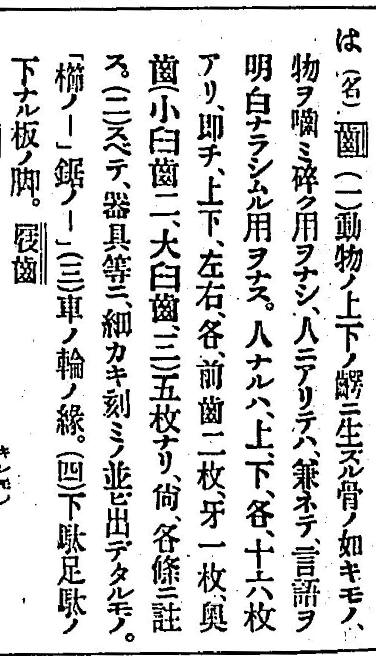 は（名）齒（一）動物ノ上下ノ齶ニ生ズル骨ノ如キモノ、
物ヲ嚙ミ碎ク用ヲナシ、人ニアリテハ、兼ネテ、言語ヲ
明白ナラシムル用ヲナス。人ナルハ、上、下、各、十六枚
アリ、即チ、上下、左右、各、前齒二枚、牙一枚、奥
齒（小臼齒二、大臼齒、三）五枚ナリ、尙、各條ニ註
ス。（二）スベテ、器具等ニ、細カキ刻ミノ並ビ出デタルモノ。
「櫛ノ―」鋸ノ―」（三）車ノ輪ノ緣。（四）下駄足駄ノ
下ナル板ノ脚。屐齒